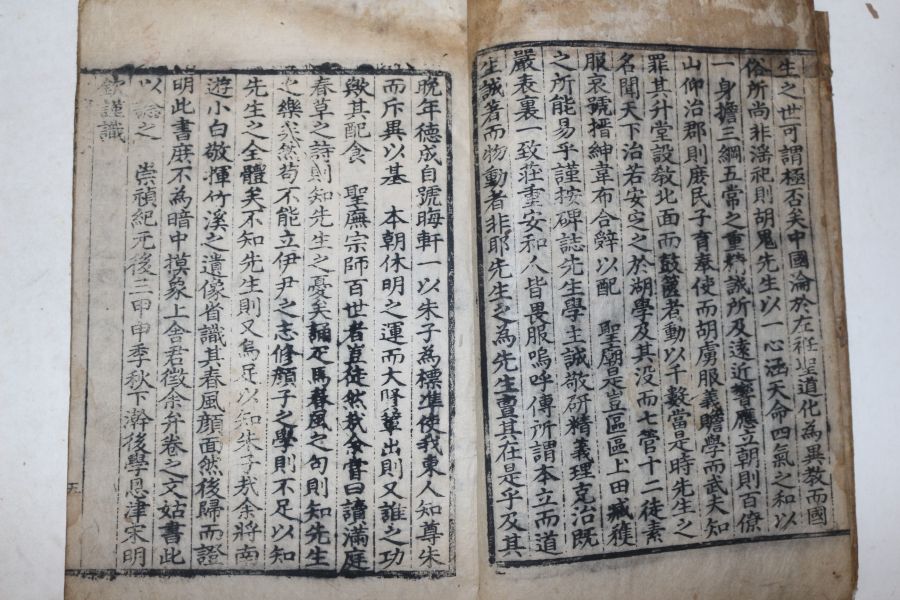 生之世可謂極否矣中國淪於左衽聖道化為異教而國
俗所尚非淫祀則胡鬼先生以一心涵天命四氣之和以
一身擔三綱五常之重精誠所及遠近響應立朝則百僚
山仰治郡則庶民子育奉使而胡虜服義贍學而武夫知
罪其升堂設教北面而鼓篋者動以千數當是時先生之
名聞天下治若安定之於湖學及其没而七管十二徒素
服哀號搢紳韋布合辭以配 聖廟是豈區區上田臧獲
之所能易乎謹按碑誌先生學主誠敬研精義理克治既
嚴表裏一致莊重安和人皆畏服嗚呼傳所謂本立而道
生誠著而物動者非耶先生之為先生亶其在是乎及其
晩年德成自號晦軒一以朱子為標準使我東人知尊朱
而斥異以基 本朝休明之運而大賢輩出則又誰之功
歟其配食 聖廡宗師百世者豈徒然哉余昔曰讀滿庭
春草之詩則知先生之憂矣誦疋馬春風之句則知先生
之樂矣然苟不能立伊尹之志修顔子之學則不足以知
先生之全體矣不知先生則又烏足以知朱子哉余將南
遊小白敬揮竹溪之遺像省識其春風顔面然後歸而證
明此書庶不為暗中摸象上舍君徵余弁卷之文姑書此
以諗之 崇禎紀元後三甲申季秋下澣後學恩津宋明
欽謹識
五